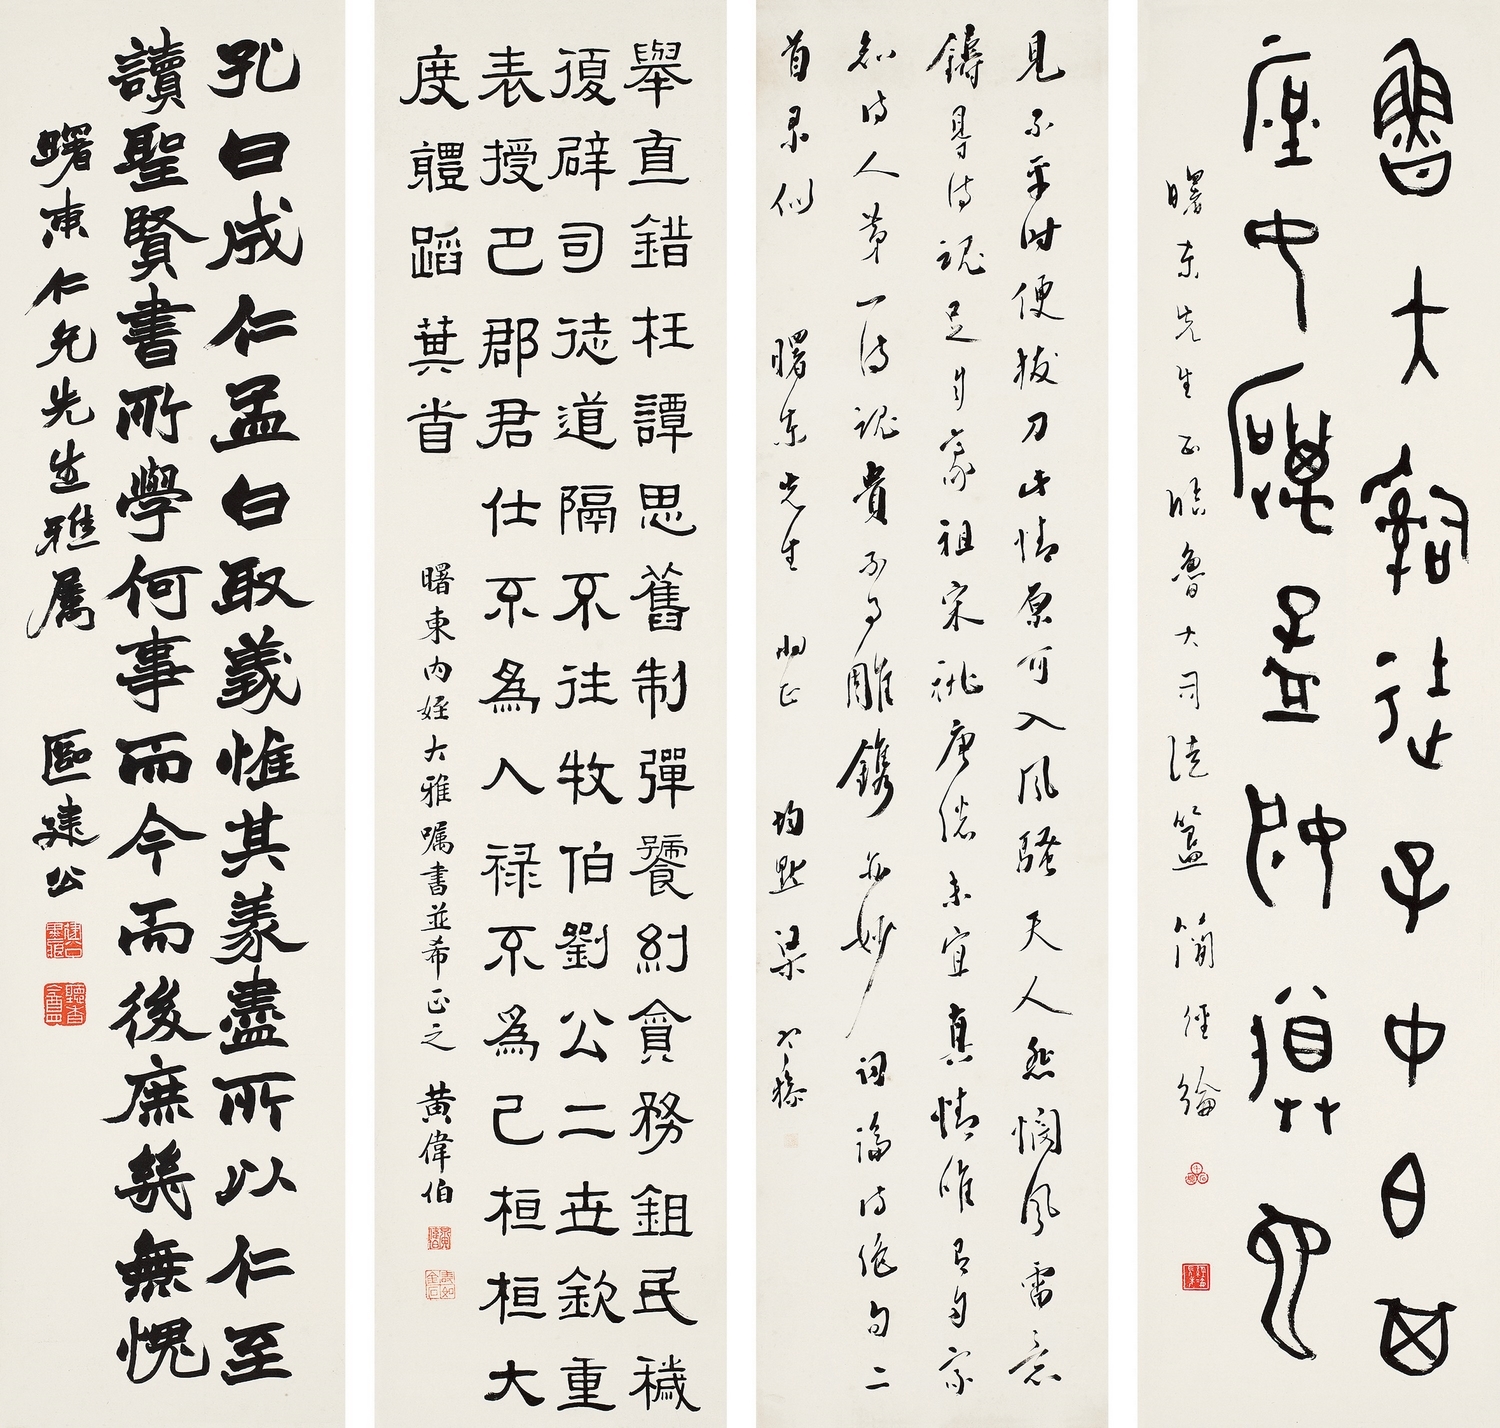 魯大嗣徒子中白其
庶女厲孟姬賸它
曙東先生正臨魯大司徒簠 簡經綸
見不平時便拔刀此情原可入風騷天人悲憫風雷意
鑄得詩魂足自豪祖宋祧唐總未宜真情唯有自家
知詩人第一詩魂貴不事雕鐫亦妙詞 論詩絕句二
首录似 曙東先生 正 均默梁寒操
舉直錯枉譚思舊制彈饕糾貪務鉏民穢
復辟司徒道隔不往牧伯劉公二世欽重
表授巴郡君仕不為人祿不為己桓桓大
度體蹈萁首
曙東內姪大雅嘱書並希正之 黄偉伯
孔曰成仁孟曰取義惟其義盡所以仁至
讀聖賢書所學何事而今而後庶幾無愧
曙東仁兄先生雅屬 區建公